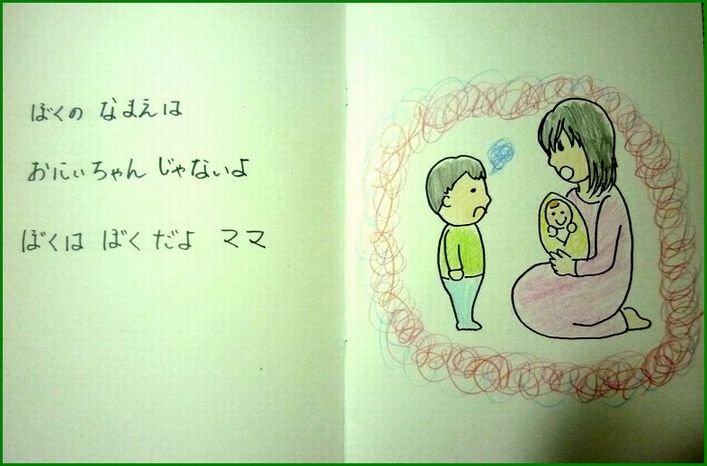 ぼくの なまえは
おにぃちゃん じゃないよ
ぼくは ぼくだよ ママ